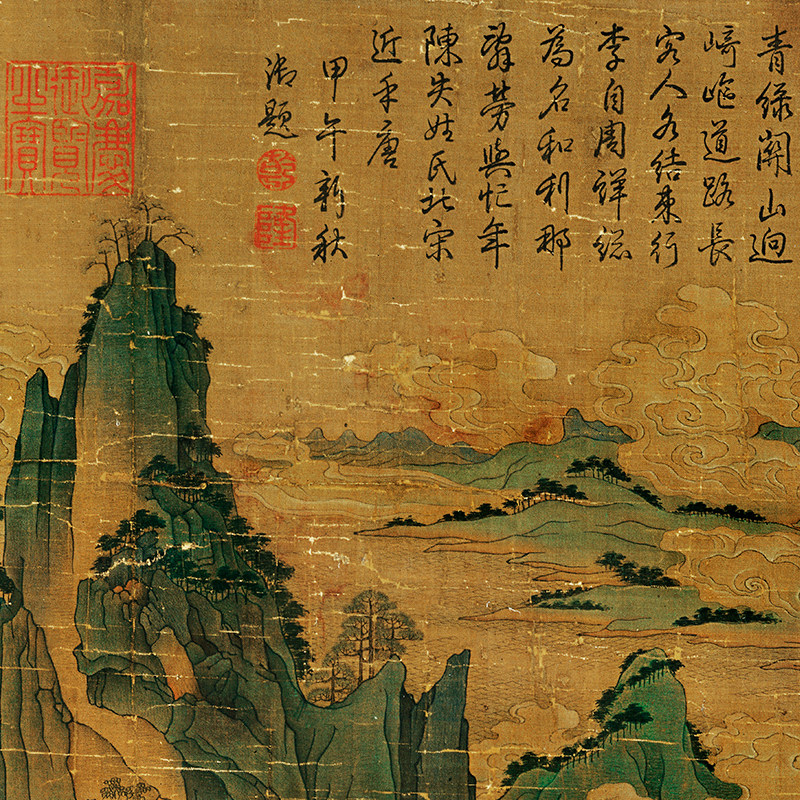 青綠關山迥
崎嶇道路長
客人各結束行
李自周詳總
為名和利那
辭勞與忙年
陳失姓氏北宋
近乎唐
甲午新秋
御題
乾
隆
嘉慶
御覽
之寶